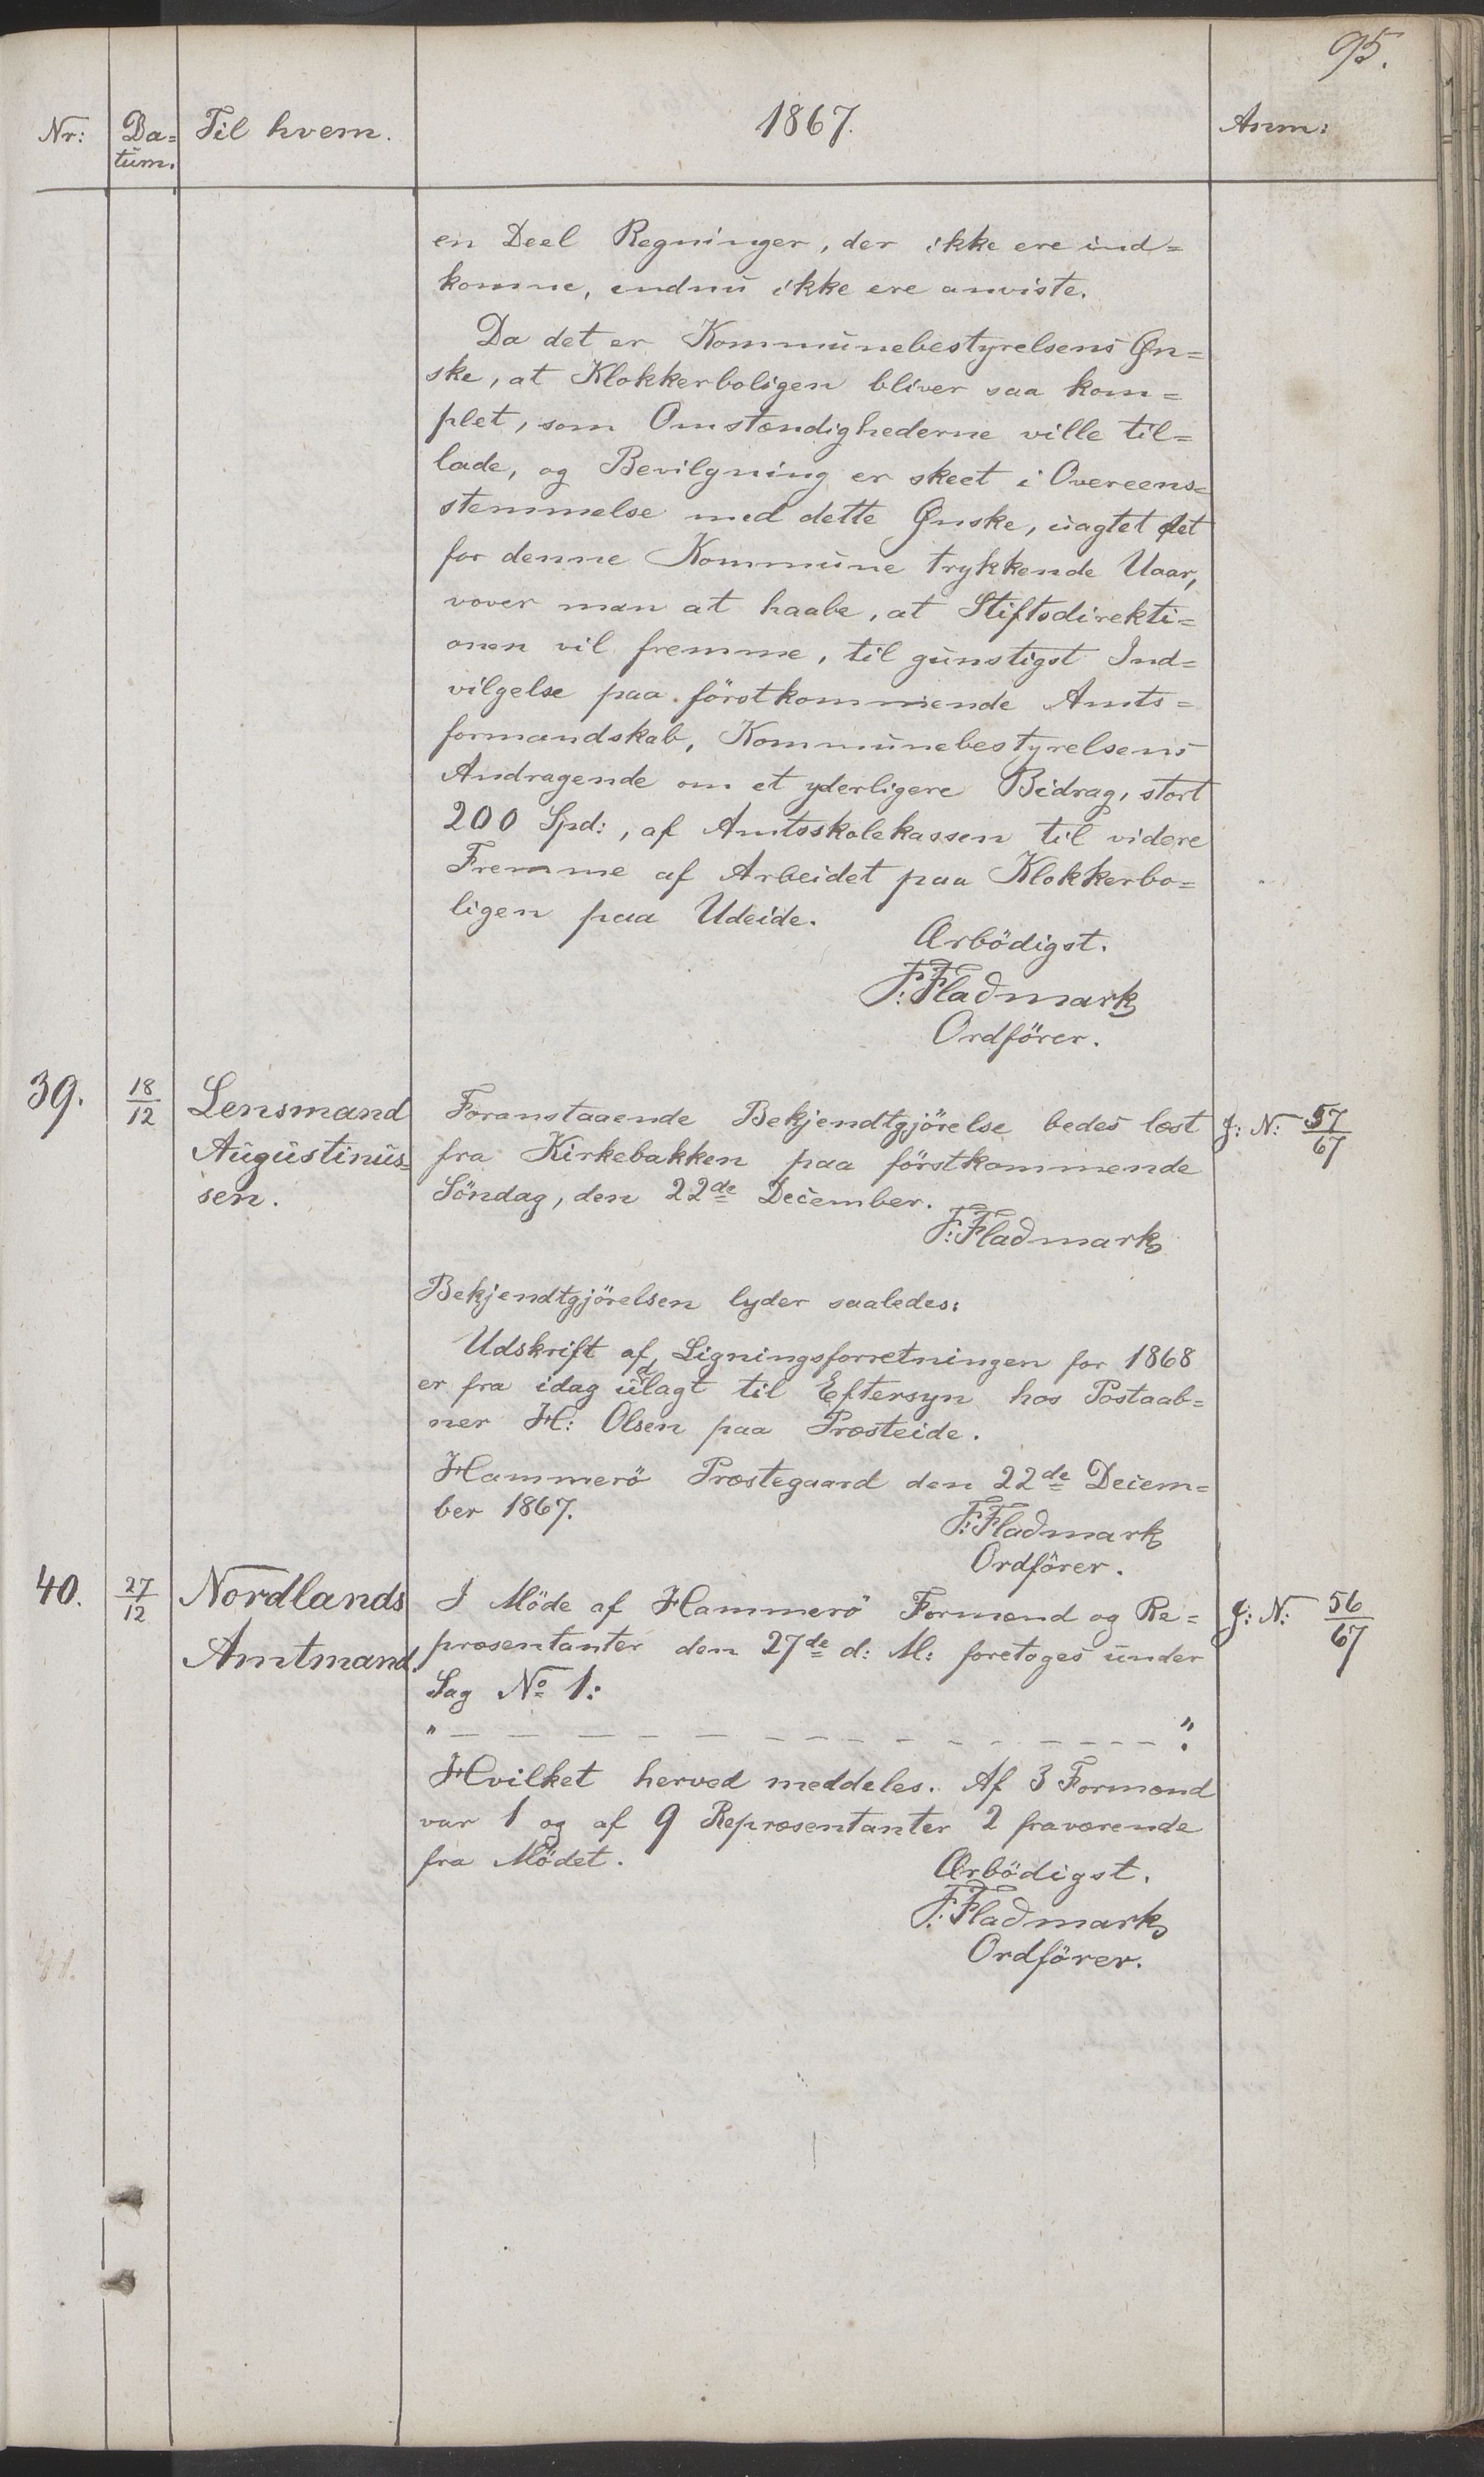 95.
Nr: Da= Til hvem. 1867. Anm:
tum.
en Deel Regninger, der ikke ere ind=
komne, endnu ikke ere anviste.
Da det er Kommunebestyrelsens Øn=
ske, at Klokkerboligen bliver saa kom=
plet, som Omstændighederne ville til=
lade, og Bevilgning er skeet i Overeens=
stemmelse med dette Ønske, uagtet det
for denne Kommune trykkende Uaar,
vover man at haabe, at Stiftsdirekti=
onen vil fremme, til gunstigst Ind=
vilgelse paa förstkommende Amts=
formandskab, Kommunebestyrelsens
Andragende om et yderligere Bidrag, stort
200 Spd:, af Amtsskolekassen til videre
Fremme af Arbeidet paa Klokkerbo=
ligen paa Udeide.
Ærbödigst.
F: Fladmark
Ordförer.
39. 18/12 Lensmand Foranstaaende Bekjendtgjörelse bedes læst J: N: 57/67
Augustinus= fra Kirkebakken paa förstkommende
sen. Söndag, den 22de December.
F: Fladmark
Bekjendtgjörelsen lyder saaledes:
Udskrift af Ligningsforretningen for 1868
er fra idag udlagt til Eftersyn hos Postaab=
ner H: Olsen paa Præsteide.
Hammerö Præstegaard den 22de Decem=
ber 1867.
F: Fladmark
Ordförer.
40. 27/12 Nordlands I Möde af Hammerö Formænd og Re= J: N: 56/67
Amtmand. præsentanter den 27de d: M: foretoges under
Sag No 1:
" — — — — — — — — — — — — — — — ".
Hvilket herved meddeles. Af 3 Formænd
var 1 og af 9 Repræsentanter 2 fraværende
fra Mödet.
Ærbödigst.
F: Fladmark
41.
Ordförer.